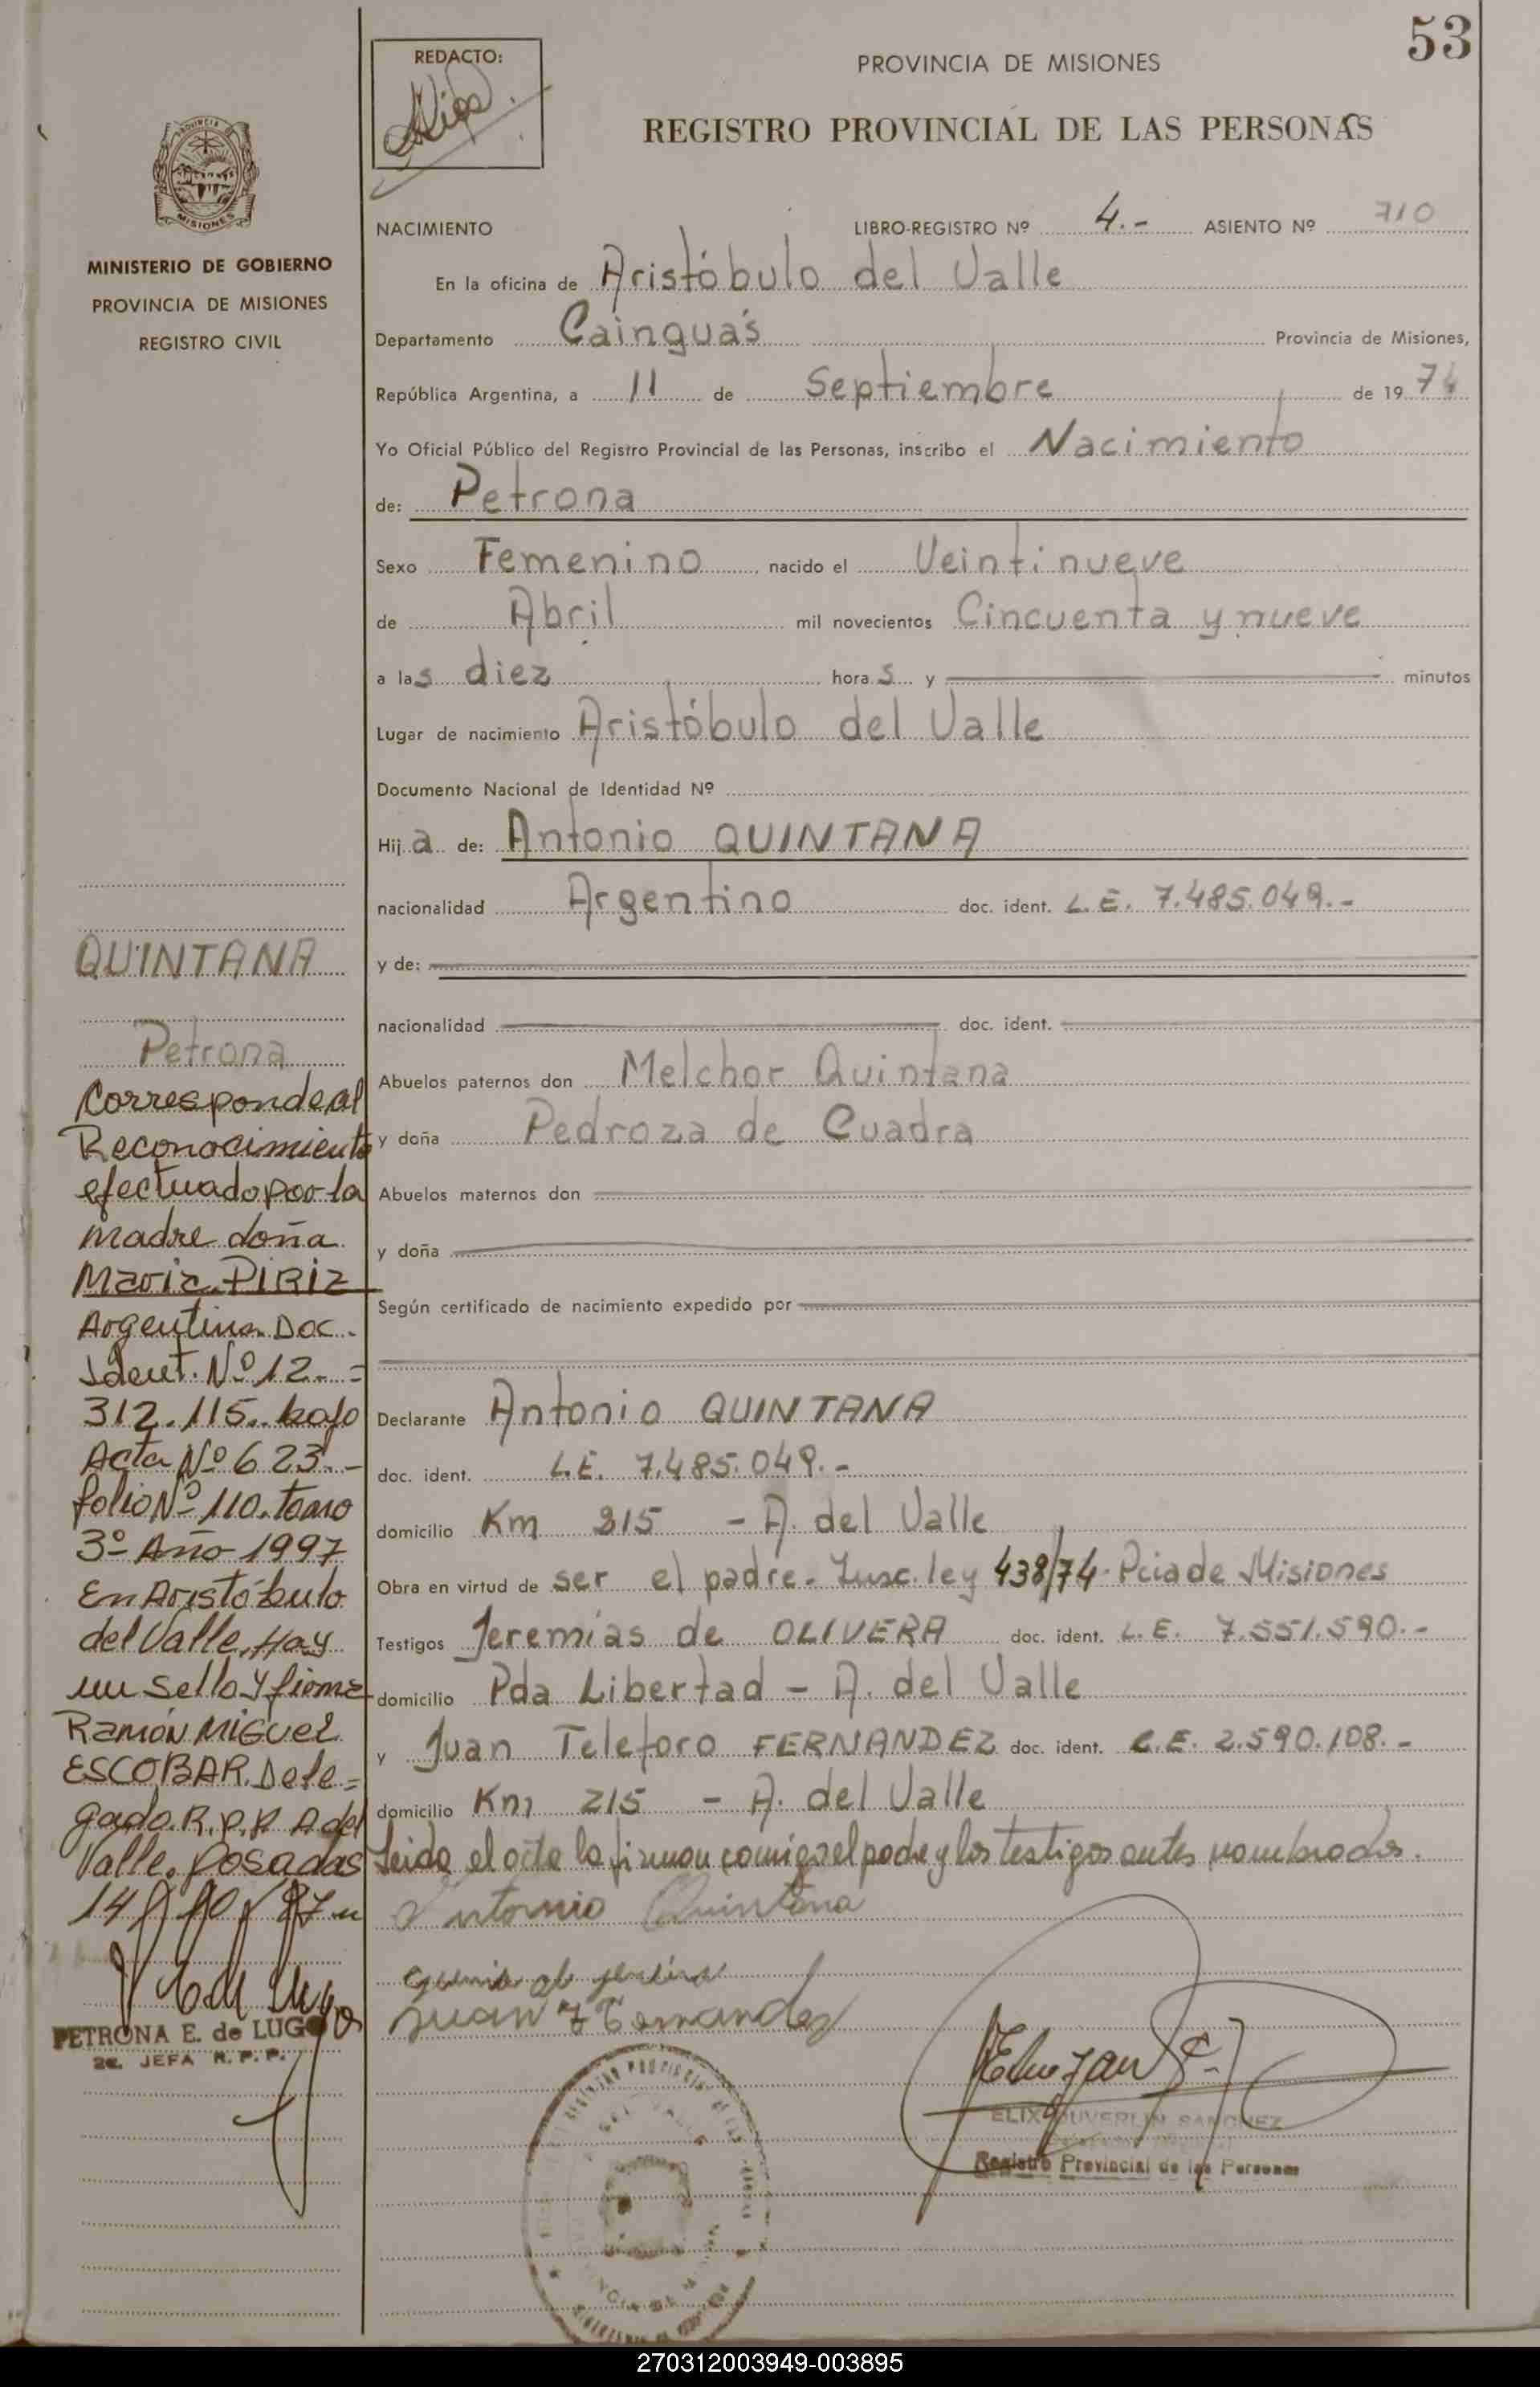 53
REDACTO:
PROVINCIA DE MISIONES
REGISTRO PROVINCIAL DE LAS PERSONAS
PROVINCIA DE
MISIONES
MINISTERIO DE GOBIERNO
PROVINCIA DE MISIONES
REGISTRO CIVIL
NACIMIENTO LIBRO-REGISTRO Nº 4.- ASIENTO Nº 710
En la oficina de Aristóbulo del Valle
Departamento Cainguás Provincia de Misiones,
República Argentina, a 11 de Septiembre de 1974
Yo Oficial Público del Registro Provincial de las Personas, inscribo el Nacimiento
de: Petrona
Sexo Femenino, nacido el Veintinueve
de Abril mil novecientos Cincuenta y nueve
a las diez horas y minutos
Lugar de nacimiento Aristóbulo del Valle
Documento Nacional de Identidad Nº
Hija de: Antonio QUINTANA
nacionalidad Argentino doc. ident. L.E. 7.485.049.-
y de:
nacionalidad doc. ident.
Abuelos paternos don Melchor Quintana
y doña Pedroza de Cuadra
Abuelos maternos don
y doña
Según certificado de nacimiento expedido por
Declarante Antonio QUINTANA
doc. ident. L.E. 7.485.049.-
domicilio Km 215 - A. del Valle
Obra en virtud de ser el padre. Insc. ley 438/74. Pcia de Misiones
Testigos Jeremías de OLIVERA doc. ident. L.E. 7.551.590.-
domicilio Pda Libertad - A. del Valle
y Juan Teleforo FERNANDEZ doc. ident. L.E. 2.590.108.-
domicilio Km 215 - A. del Valle
Leida el acta la firman comigo el padre y los testigos antes nombrados.
Antonio Quintana
Juan T Fernandez
ELIX DUVERLIN SANCHEZ
Registro Provincial de las Personas
QUINTANA
Petrona
Corresponde al
Reconocimiento
efectuado por la
madre doña
Maria PIRIZ
Argentina Doc.
Ident. Nº 12.-=
312.115.. bajo
Acta Nº 623.-
folio Nº 110. Tomo
3º Año 1997
En Aristóbulo
del Valle. Hay
un sello y firma
Ramón MIGUEL
ESCOBAR. Dele=
gado. R.P.P. A del
Valle. Posadas
14/10/97
PETRONA E. de LUGO
2a. JEFA R.P.P.
270312003949-003895